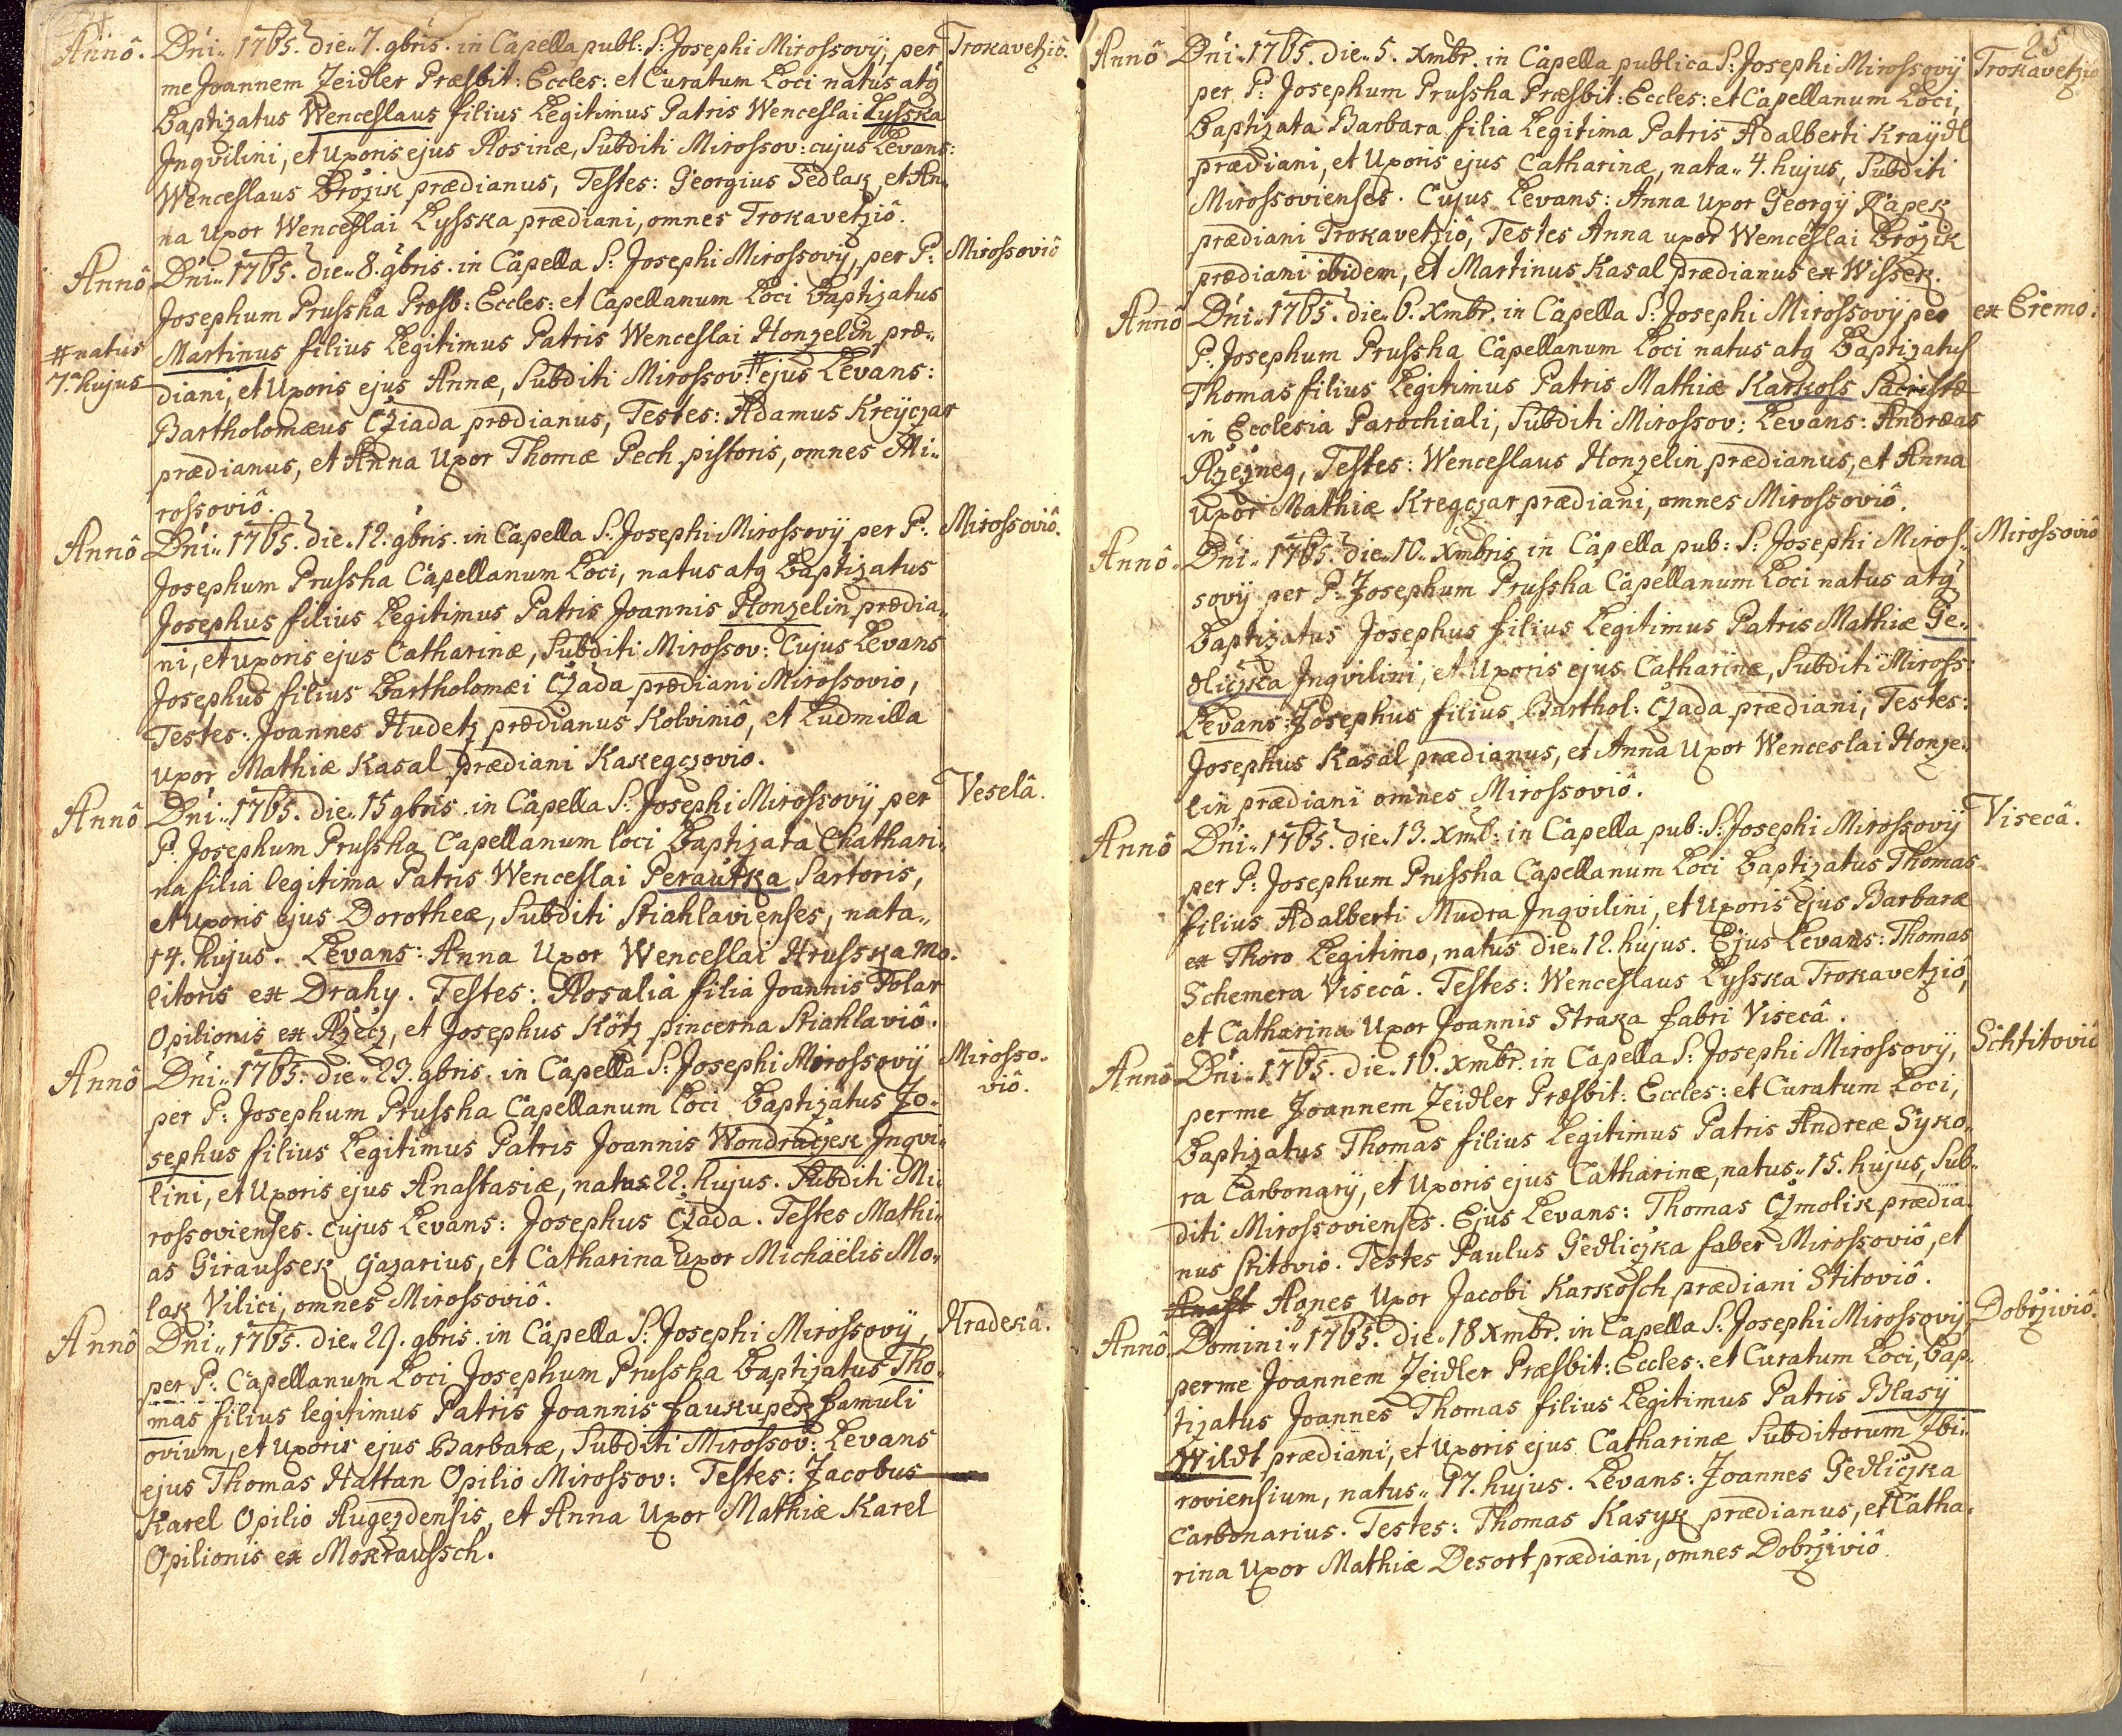 Annô. Dńi„ 1765. die„ 7. gbris. in Capella publ: S: Josephi Mirossovij, per Trokavetziô.
me Joannem Zeidler Præsbit: Eccles: et Curatum Loci natus atq
Baptizatus Wenceslaus filius Legitimus Patris Wenceslai Lysska
Jnqvilini, et Uxoris ejus Rosinæ, Subditi Mirossov: cujus Levans:
Wenceslaus Brožik prædianus, Testes: Georgius Sedlak, et An„
na Uxor Wenceslai Lysska prædiani, omnes Trokavetziô.
Annô Dńi„ 1765. die„ 8. gbris. in Capella S: Josephi Mirossovij, per P: Mirossoviô
Josephum Prussha Præsb: Eccles: et Capellanum Loci Baptizatus
# natus
7. hujus
Martinus filius Legitimus Patris Wenceslai Honzelin præ„
diani, et Uxoris ejus Annæ, Subditi Mirossov: # ejus Levans:
Bartholomæus Cziada prædianus, Testes: Adamus Kreÿczar
prædianus, et Anna Uxor Thomæ Pech pistoris, omnes Mi„
rossoviô.
Annô Dńi„ 1765. die„ 12. gbris. in Capella S: Josephi Mirossovij per P. Mirossoviô.
Josephum Prussha Capellanum Loci, natus atq Baptizatus
Josephus filius Legitimus Patris Joannis Honzelin prædia„
ni, et uxoris ejus Catharinæ, Subditi Mirossov: Cujus Levans
Josephus filius Bartholomæi Czada prædiani Mirossovio,
Testes: Joannes Hudetz prædianus Kolviniô, et Ludmilla
Uxor Mathiæ Kasal prædiani Kakegczovio.
Annô Dńi„ 1765. die„ 15 gbris. in Capella S: Josephi Mirossovij, per Veselâ.
P. Josephum Prussha Capellanum loci Baptizata Chathari„
na filia legitima Patris Wenceslai Perautka Sartoris,
et Uxoris ejus Dorotheæ, Subditi Stiahlavienses, nata„
14. hujus. Levans: Anna Uxor Wenceslai Hrusska Mo„
litoris ex Drahy. Testes: Rosalia filia Joannis Tolar
Opilionis ex Rzecz, et Josephus Kötz pincerna Stiahlaviô.
Annô Dńi„ 1765. die„ 23. gbris. in Capella S: Josephi Mirossovij Mirosso„
viô.
per P: Josephum Prussha Capellanum Loci Baptizatus Jo„
sephus filius Legitimus Patris Joannis Wondraczek Jnqvi„
lini, et Uxoris ejus Anastasiæ, natus 22. hujus. Subditi Mi„
rossovienses. cujus Levans: Josephus Czada. Testes Mathi„
as Giraussek Gazarius, et Catharina Uxor Michaëlis Mo„
lak Vilici, omnes Mirossoviô.
Annô Dńi„ 1765. die„ 29. gbris. in Capella S: Josephi Mirossovij, Hradekâ.
per P: Capellanum Loci Josephum Prussha Baptizatus Tho„
mas filius legitimus Patris Joannis Faukupek famuli
ovium, et Uxoris ejus Barbaræ, Subditi Mirossov: Levans
ejus Thomas Hattan Opilio Mirossov: Testes: Jacobus
Karel Opilio Augezdensis, et Anna Uxor Mathiæ Karel
Opilionis ex Mokraussch.
25
Annô Dńi„ 1765. die„ 5. Xmbr. in Capella publica S: Josephi Mirossovij Trokavetziô
per P: Josephum Prussha Præsbit: Eccles: et Capellanum Loci,
Baptizata Barbara filia Legitima Patris Adalberti Kraÿdl
prædiani, et Uxoris ejus Catharinæ, nata„ 4. hujus, Subditi
Mirossovienses. Cujus Levans: Anna Uxor Georgij Kapek
prædiani Trokavetziô, Testes Anna uxor Wenceslai Brožik
prædiani ibidem, et Martinus Kasal prædianus ex Wissek.
Annô Dńi„ 1765. die„ 6. Xmbr. in Capella S: Josephi Mirossovij per ex Eremo.
P. Josephum Prussha Capellanum Loci natus atq Baptizatus
Thomas filius Legitimus Patris Mathiæ Karkoss Sacristæ
in Ecclesia Parochiali, Subditi Mirossov: Levans: Andræas
Rzezneg, Testes: Wenceslaus Honzelin prædianus, et Anna
Uxor Mathiæ Kregczar prædiani, omnes Mirossoviô.
Annô„ Dńi„ 1765. die„ 10„ Xmbris in Capella pub: S: Josephi Miros„ Mirossoviô
sovij per P: Josephum Prussha Capellanum Loci natus atq
Baptizatus Josephus filius Legitimus Patris Mathiæ Ge„
dliczka Jnqvilini, et Uxoris ejus Catharinæ, Subditi Miross:
Levans: Josephus filius Barthol: Czada prædiani, Testes:
Josephus Kasal prædianus, et Anna Uxor Wenceslai Honze„
lin prædiani omnes Mirossoviô.
Annô Dńi„ 1765. die„ 13. Xmb: in Capella pub: S: Josephi Mirossovij Visecâ.
per P: Josephum Prussha Capellanum Loci Baptizatus Thomas
filius Adalberti Mudra Jnqvilini, et Uxoris ejus Barbaræ
ex Thoro Legitimo, natus die„ 12. hujus. Ejus Levans: Thomas
Schemera Visecâ. Testes: Wenceslaus Lysska Trokavetziô,
et Catharina Uxor Joannis Straka fabri Visecâ.
Annô Dńi„ 1765. die„ 16. Xmbr. in Capella S: Josephi Mirossovij, Schtitoviô
per me Joannem Zeidler Præsbit: Eccles: et Curatum Loci,
Baptizatus Thomas filius Legitimus Patris Andreæ Syko„
ra Carbonarij, et Uxoris ejus Catharinæ, natus„ 15. hujus, Sub„
diti Mirossovienses. Ejus Levans: Thomas Czmolik prædia„
nus Stitovio. Testes Paulus Gedliczka faber Mirossoviô, et
Anast Agnes Uxor Jacobi Karkosch prædiani Stitoviô.
Annô„ Domini„ 1765. die„ 18 Xmbr. in Capella S: Josephi Mirossovij, Dobrziviô.
per me Joannem Zeidler Præsbit: Eccles: et Curatum Loci, Bap„
tizatus Joannes Thomas filius Legitimus Patris Blasij
Wildt prædiani, et Uxoris ejus Catharinæ Subditorum Zbi„
roviensium, natus„ 17. hujus. Levans: Joannes Gedliczka
Carbonarius. Testes: Thomas Kasyk prædianus, et Catha„
rina Uxor Mathiæ Desort prædiani, omnes Dobrziviô